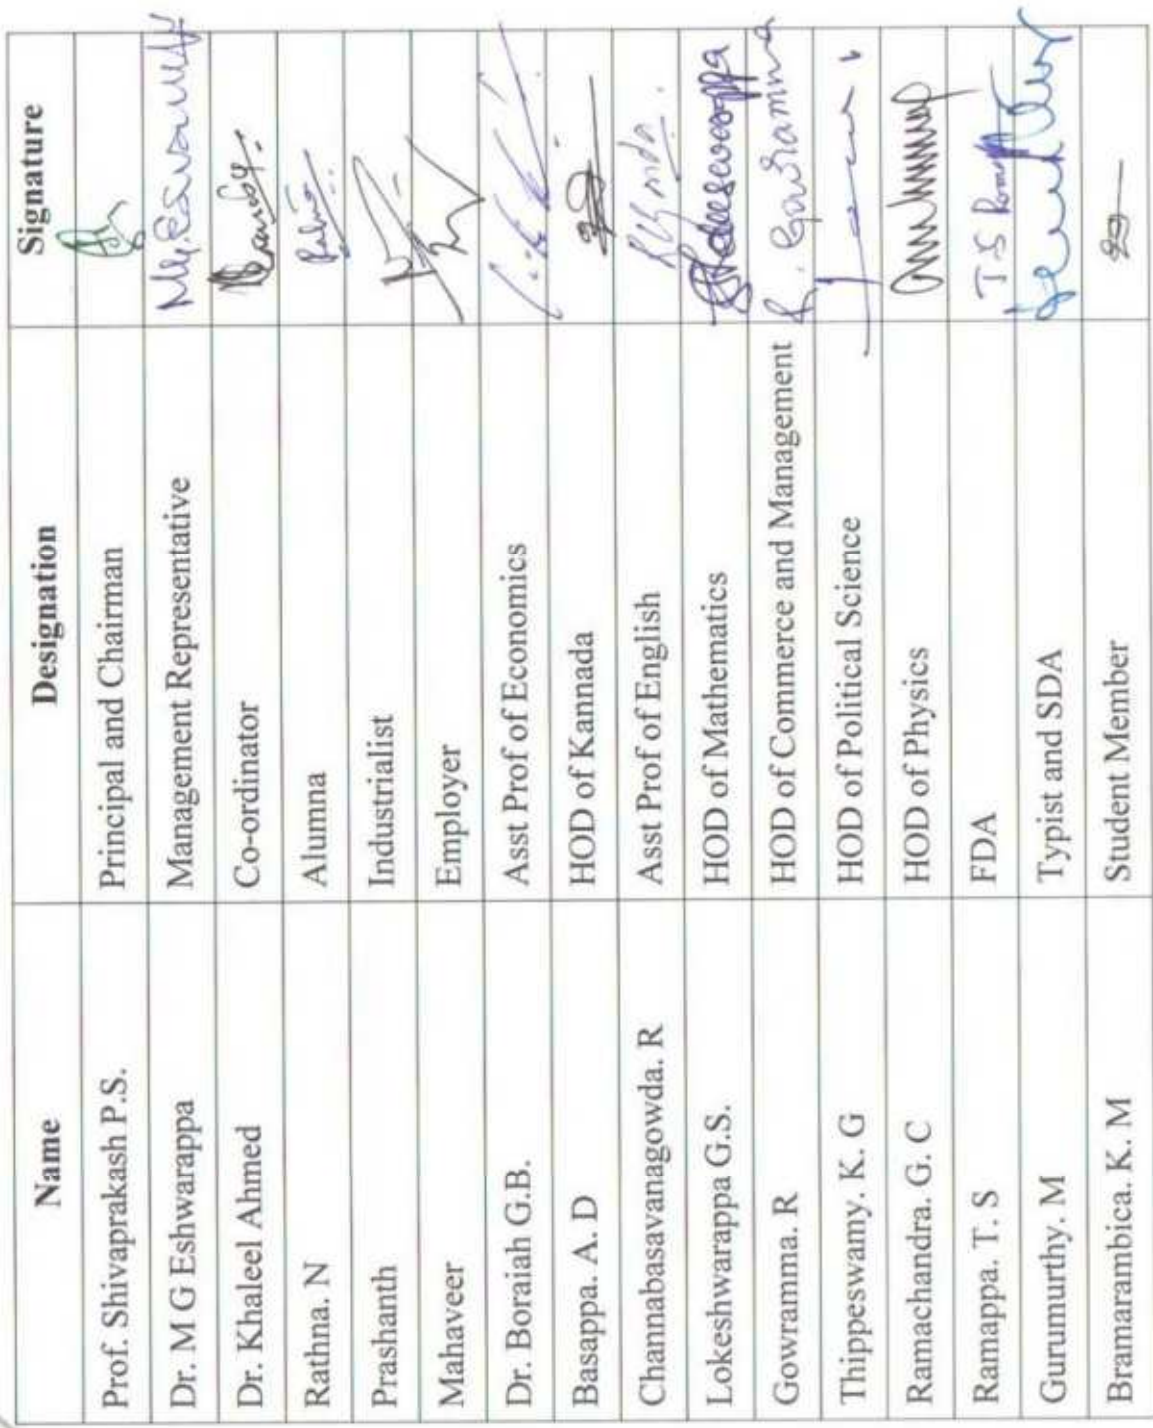 Name Designation Signature
Prof. Shivaprakash P.S. Principal and Chairman
Dr. M G Eshwarappa Management Representative
Dr. Khaleel Ahmed Co-ordinator
Rathna. N Alumna
Prashanth Industrialist
Mahaveer Employer
Dr. Boraiah G.B. Asst Prof of Economics
Basappa. A. D HOD of Kannada
Channabasavanagowda. R Asst Prof of English
Lokeshwarappa G.S. HOD of Mathematics
Gowramma. R HOD of Commerce and Management R. Gowramma
Thippeswamy. K. G HOD of Political Science
Ramachandra. G. C HOD of Physics
Ramappa. T. S FDA T.S
Gurumurthy. M Typist and SDA
Bramarambica. K. M Student Member